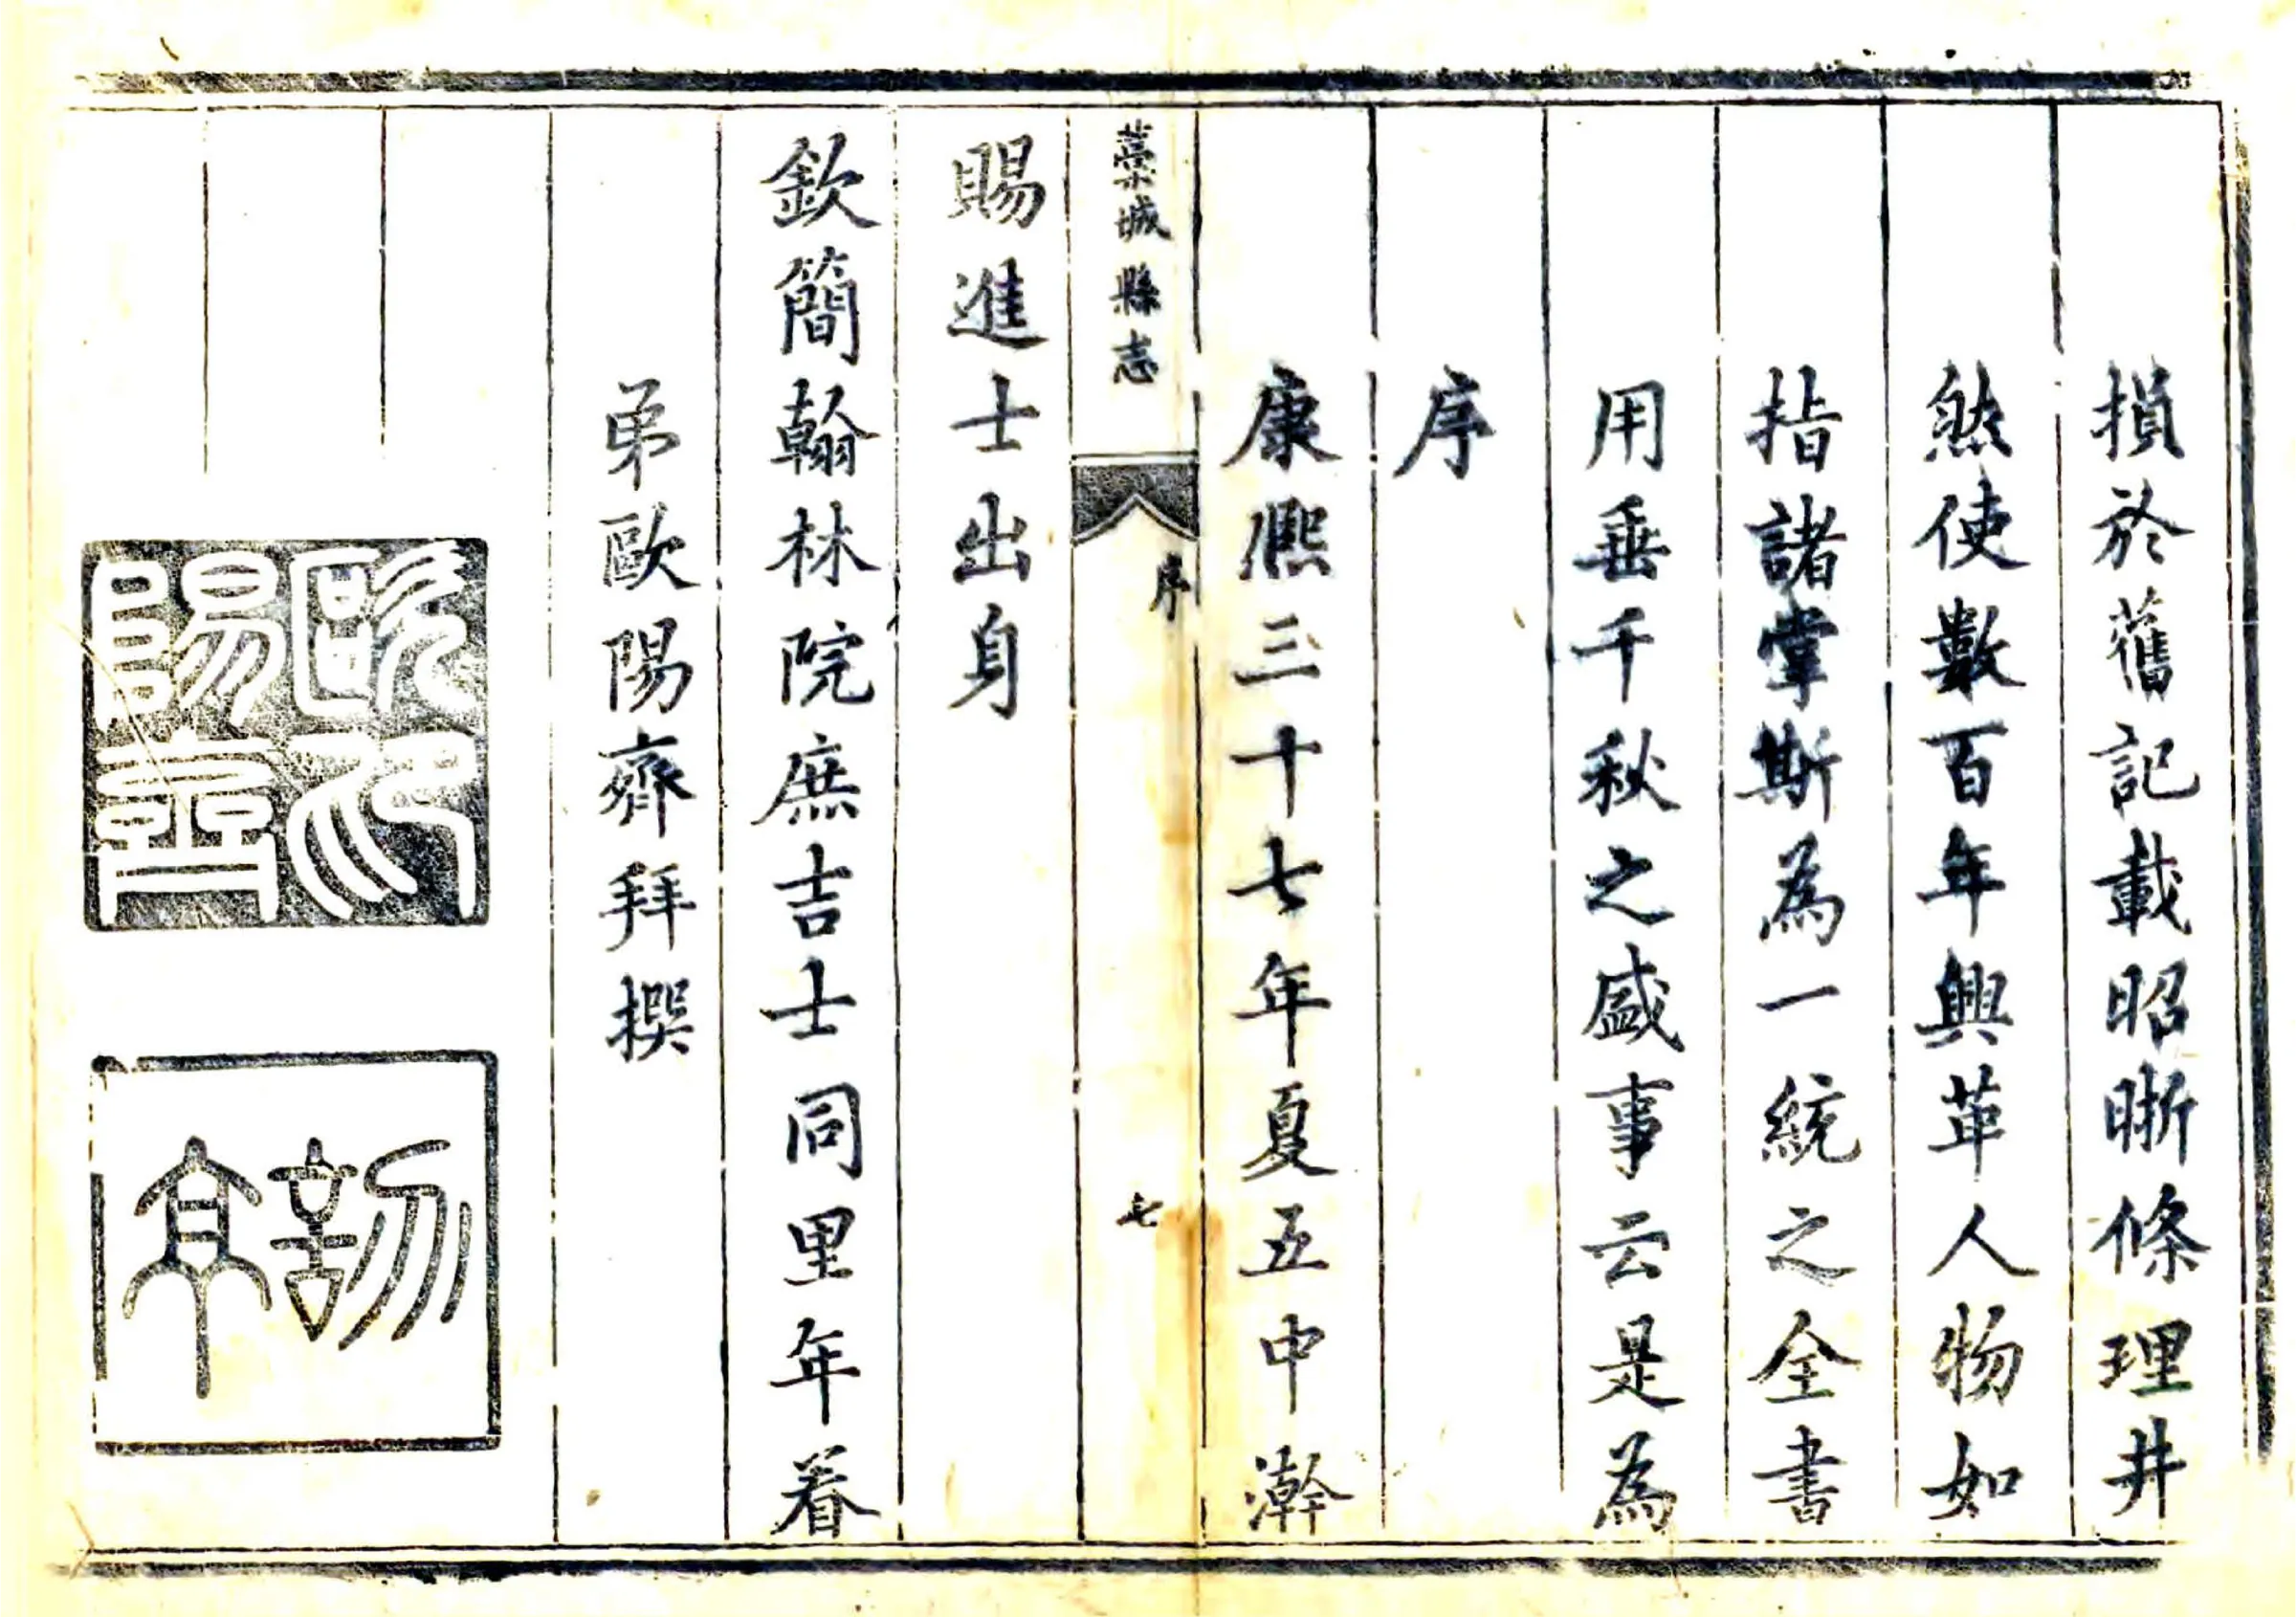 損於舊記載昭晰條理井
然使數百年興革人物如
指諸掌斯為一統之全書
用垂千秋之盛事云是為
序
康熙三十七年夏五中澣
藁城縣志
序
七
賜進士出身
欽簡翰林院庶吉士同里年眷
弟歐陽齊拜撰
歐陽齊印
訒亭